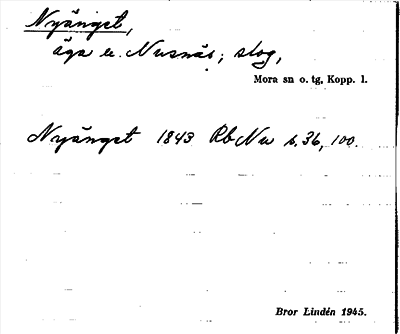 Nyänget,
äga ö. Nusnäs; skog,
Mora sn o. tg, Kopp. l.
Nyänget 1843 Rb Nu s. 36, 100.
Bror Lindén 1945.